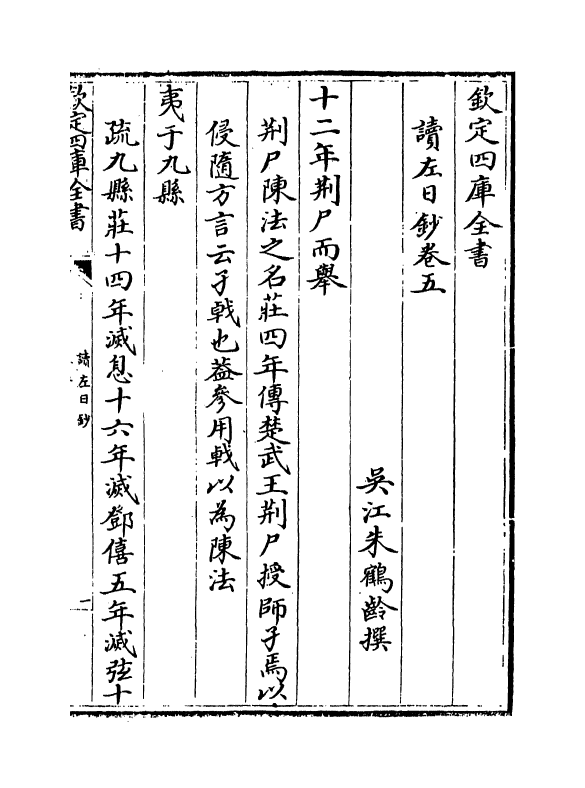 欽定四庫全書
讀左日鈔卷五
吳江朱鶴齡撰
十二年荆尸而舉
荆尸陳法之名莊四年傳楚武王荆尸授師孑焉以
侵隨方言云孑戟也葢參用戟以為陳法
夷于九縣
疏九縣莊十四年滅息十六年滅鄧僖五年滅弦十
欽定四庫全書
讀左日鈔
一